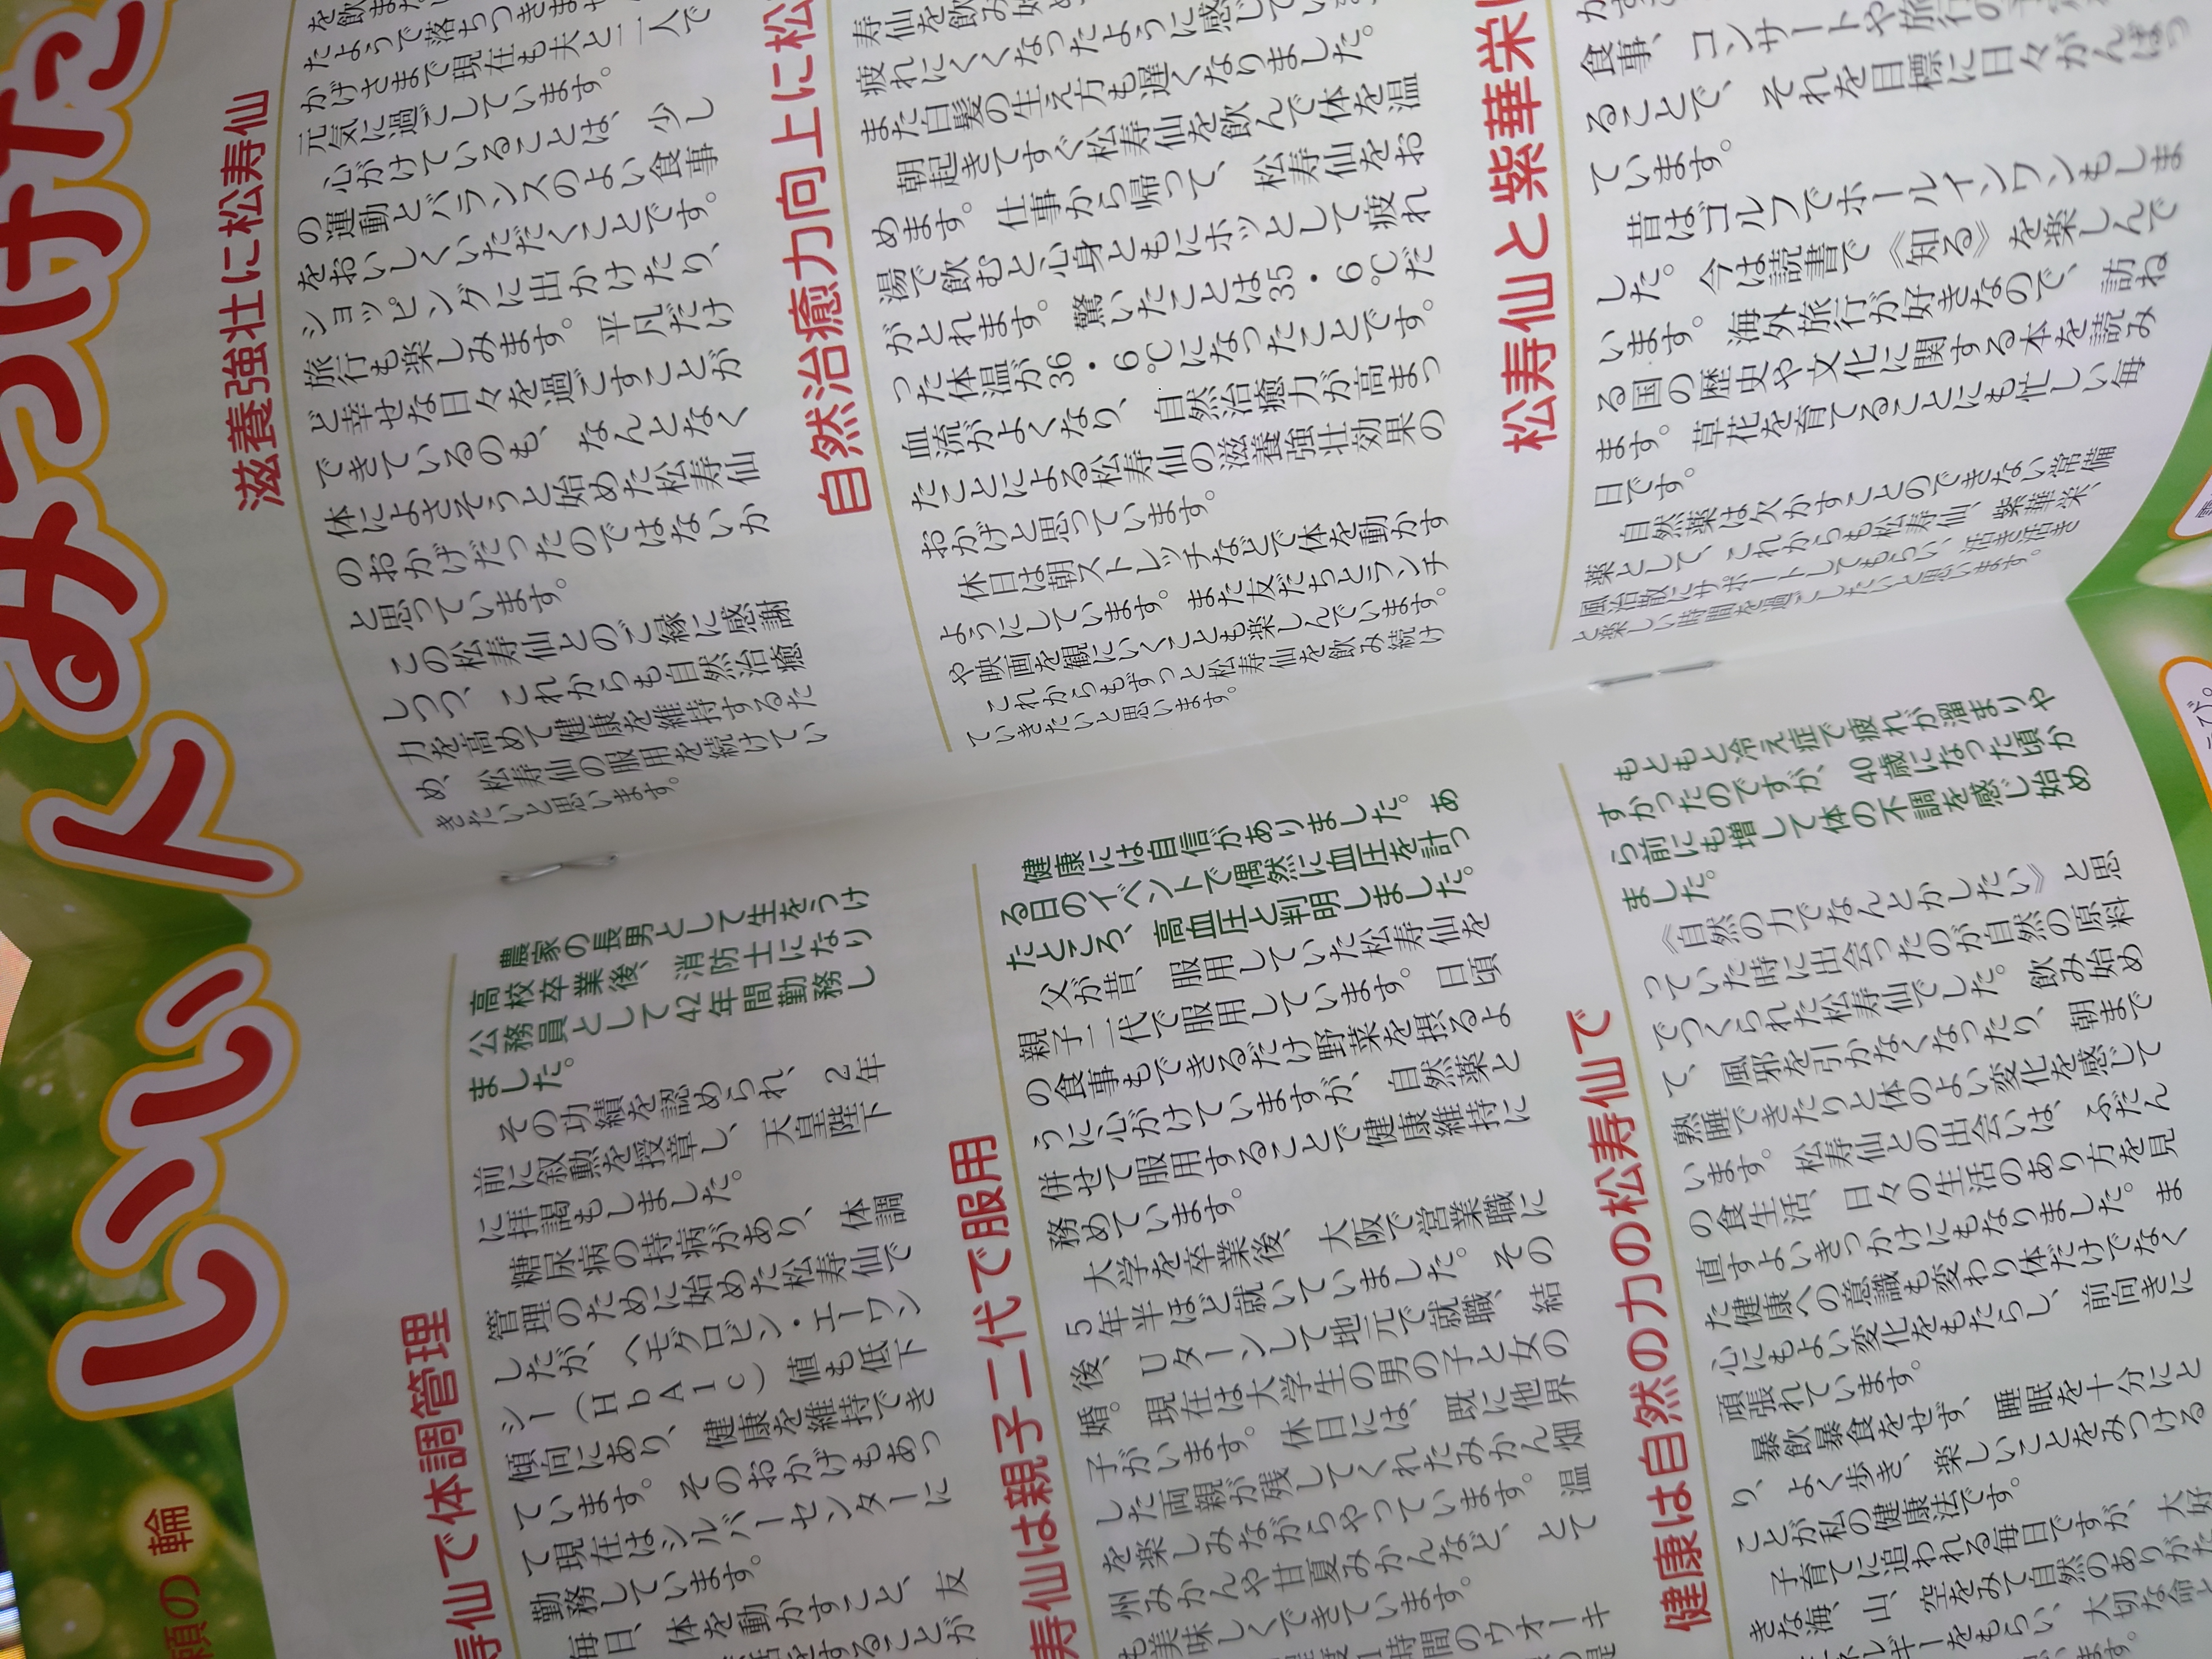 願の輪
いい人みつけた
滋養強壮に松寿仙
たようで落ちつきませ
かげさまで現在も夫と二人で
元気に過ごしています。
心がけていることは、少し
の運動とバランスのよい食事
をおいしくいただくことです。
ショッピングに出かけたり、
旅行も楽しみます。平凡だけ
ど幸せな日々を過ごすことが
できているのも、なんとなく
体によさそうと始めた松寿仙
のおかげだったのではないか
と思っています。
この松寿仙とのご縁に感謝
しつつ、これからも自然治癒
力を高めて健康を維持するた
め、松寿仙の服用を続けてい
きたいと思います。
寿仙で体調管理
農家の長男として生をうけ
高校卒業後、消防士になり
公務員として42年間勤務し
ました。
その功績を認められ、2年
前に叙勲を授章し、天皇陛下
に拝謁もしました。
糖尿病の持病があり、体調
管理のために始めた松寿仙で
したが、ヘモグロビン・エーワン
シー(HbA1c)値も低下
傾向にあり、健康を維持でき
ています。そのおかげもあっ
て現在はシルバーセンターに
勤務しています。
毎日、体を動かすこと、友
をすることが
自然治癒力向上に松
寿仙を飲み始め
疲れにくくなったように感じてい
また白髪の生え方も遅くなりました。
朝起きてすぐ松寿仙を飲んで体を温
めます。仕事から帰って、松寿仙をお
湯で飲むと心身ともにホッとして疲れ
がとれます。驚いたことは35・6℃だ
った体温が36・6℃になったことです。
血流がよくなり、自然治癒力が高まっ
たことによる松寿仙の滋養強壮効果の
おかげと思っています。
休日は朝ストレッチなどで体を動かす
ようにしています。また友だちとランチ
や映画を観にいくことも楽しんでいます。
これからもずっと松寿仙を飲み続け
ていきたいと思います。
寿仙は親子二代で服用
健康には自信がありました。あ
る日のイベントで偶然に血圧を計っ
たところ、高血圧と判明しました。
父が昔、服用していた松寿仙を
親子二代で服用しています。日頃
の食事もできるだけ野菜を摂るよ
うに心がけていますが、自然薬と
併せて服用することで健康維持に
務めています。
大学を卒業後、大阪で営業職に
5年半ほど就いていました。その
後、Uターンして地元で就職、結
婚。現在は大学生の男の子と女の
子がいます。休日には、既に他界
した両親が残してくれたみかん畑
を楽しみながらやっています。温
州みかんや甘夏みかんなど、とて
も美味しくできています。
時間のウオーキ
松寿仙と紫華栄
食事、コンサートや旅行の
ることで、それを目標に日々がんばっ
ています。
昔はゴルフでホールインワンもしま
した。今は読書で《知る》を楽しんで
います。海外旅行が好きなので、訪ね
る国の歴史や文化に関する本を読み
ます。草花を育てることにも忙しい毎
日です。
自然薬は欠かすことのできない常備
薬として、これからも松寿仙、紫華栄、
風治散にサポートしてもらい、活き活き
と楽しい時間を過ごしたいと思います。
健康は自然の力の松寿仙で
もともと冷え症で疲れが溜まりや
すかったのですが、40歳になった頃か
ら前にも増して体の不調を感じ始め
ました。
《自然の力でなんとかしたい》と思
っていた時に出会ったのが自然の原料
でつくられた松寿仙でした。飲み始め
て、風邪を引かなくなったり、朝まで
熟睡できたりと体のよい変化を感じて
います。松寿仙との出会いは、ふだん
の食生活、日々の生活のあり方を見
直すよいきっかけにもなりました。ま
た健康への意識も変わり体だけでなく
心にもよい変化をもたらし、前向きに
頑張れています。
暴飲暴食をせず、睡眠を十分にと
り、よく歩き、楽しいことをみつける
ことが私の健康法です。
子育てに追われる毎日ですが、大好
きな海、山、空をみて自然のありがた
ネルギーをもらい、大切な命